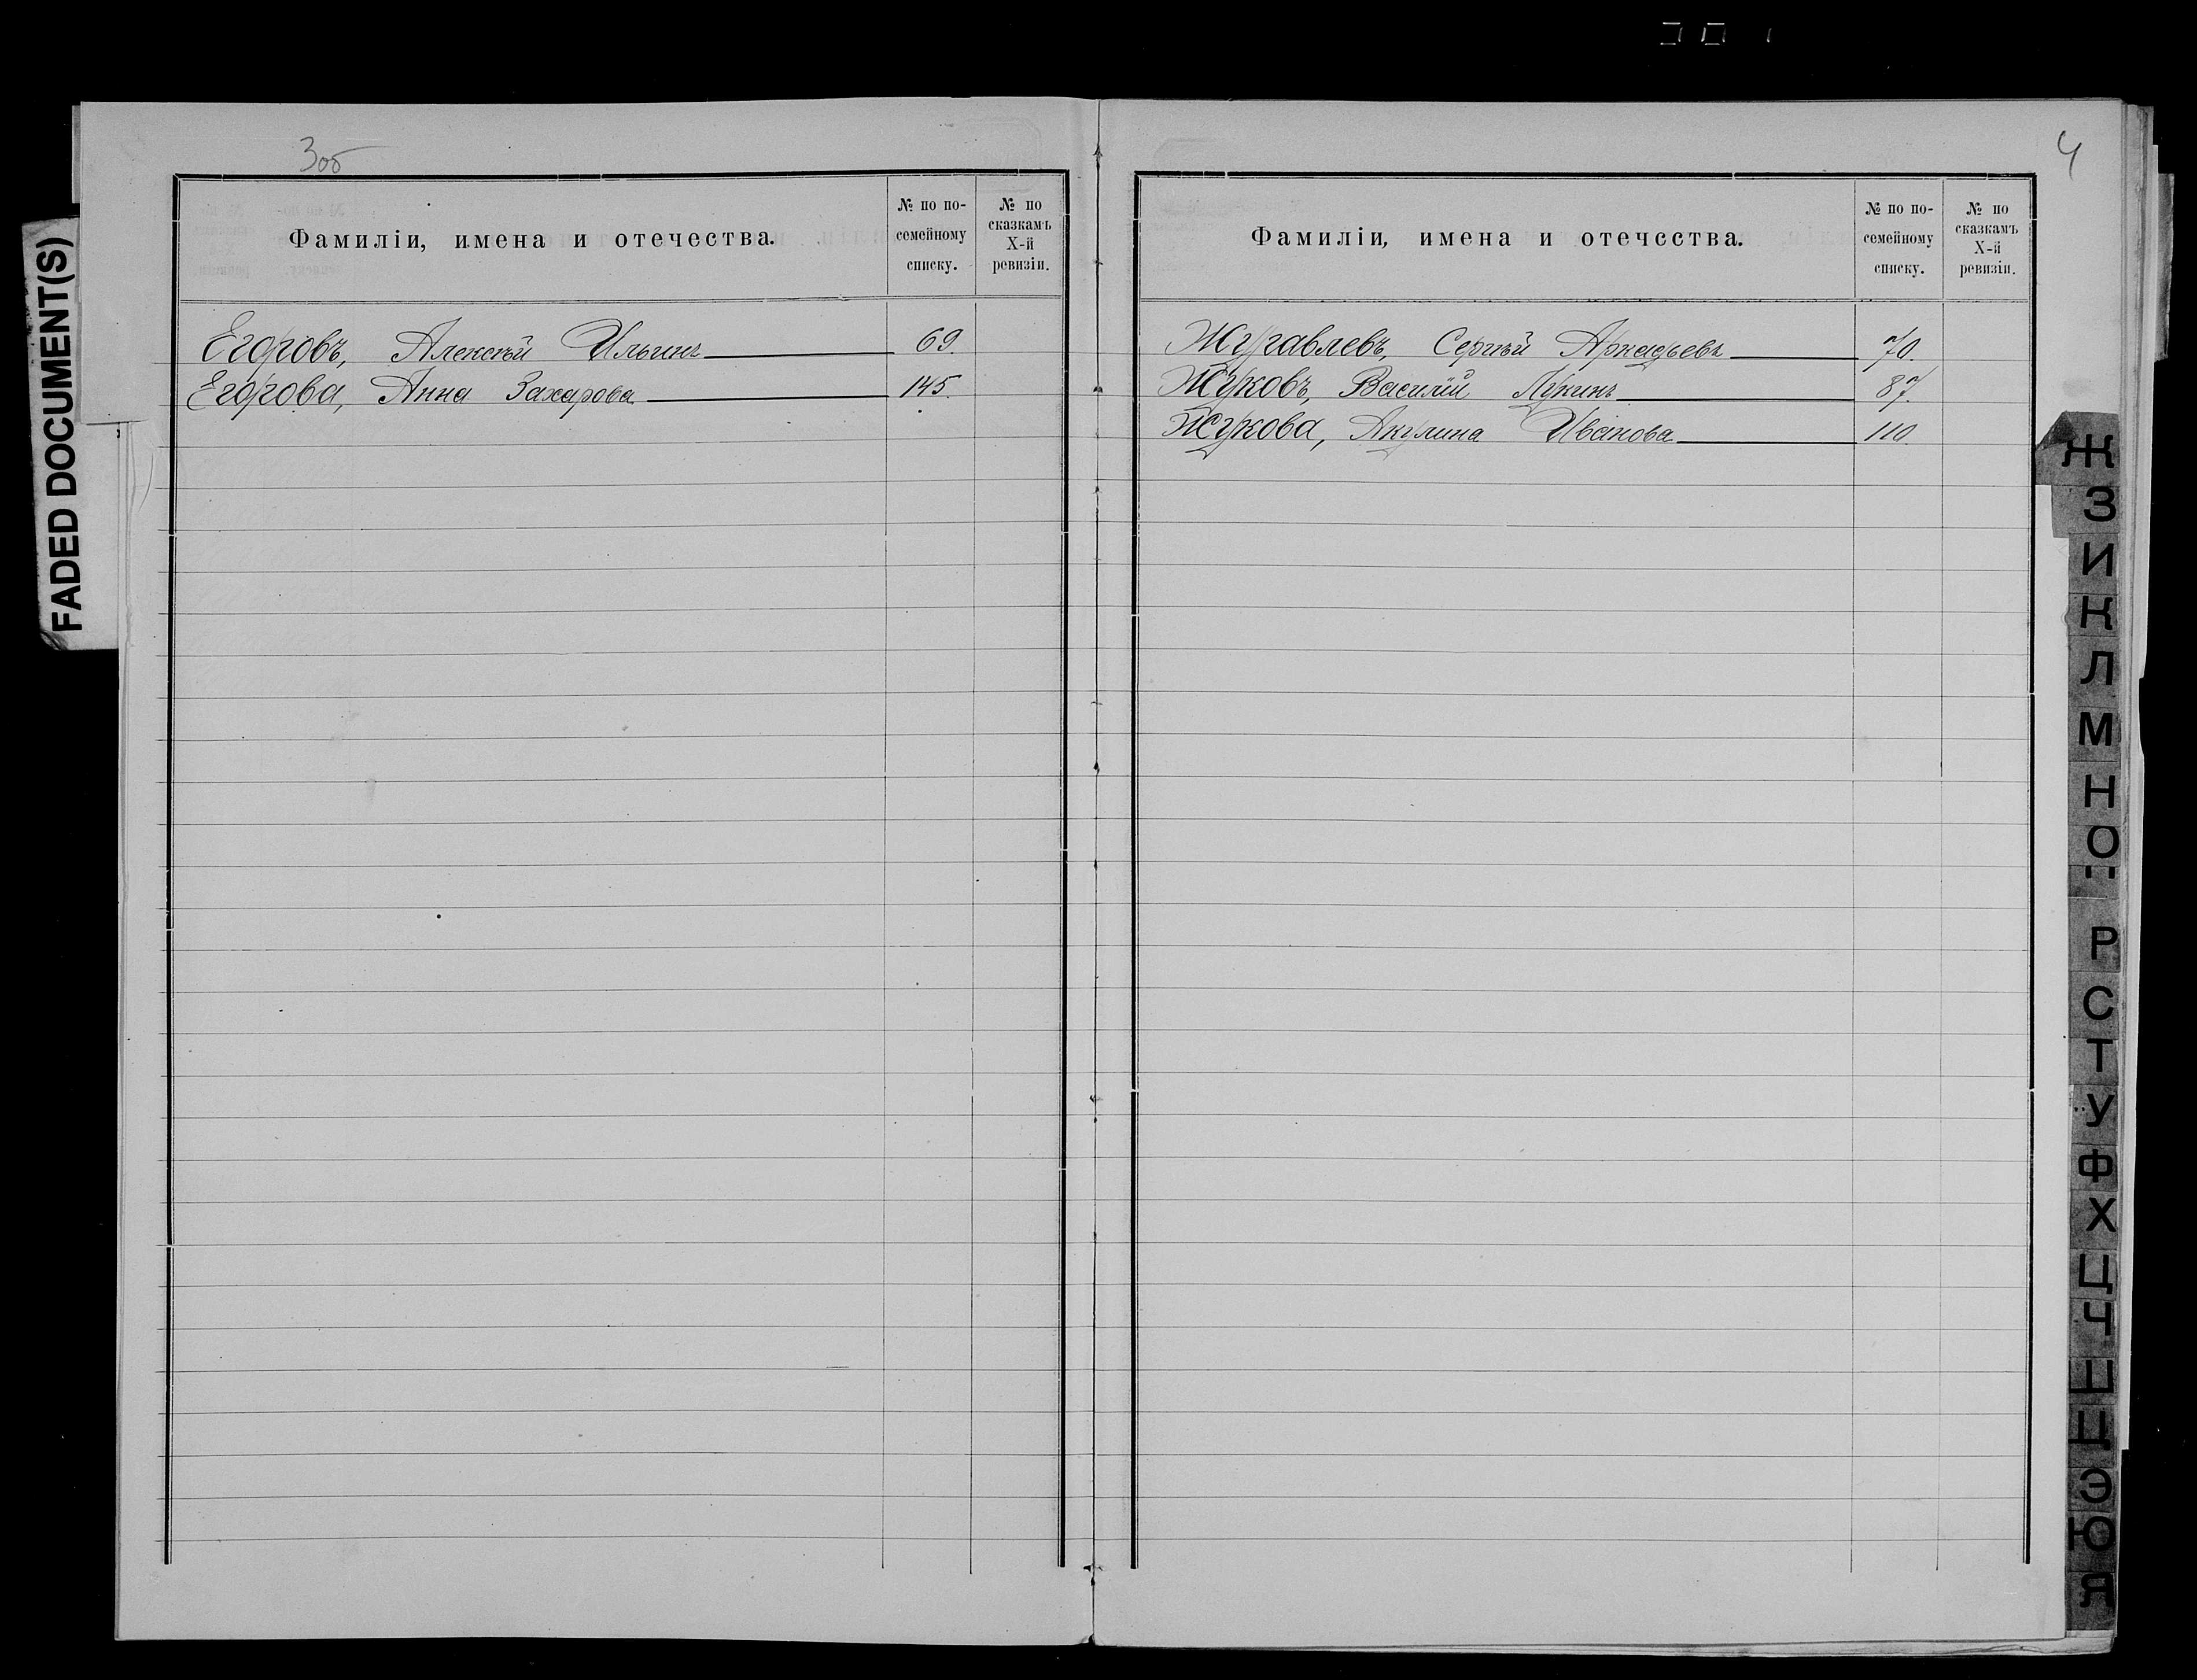 3об
Фамиліи, имена и отечества.
№ по по-
семейному
списку.
№ по
сказкамъ
X-й
ревизіи.
Егоровъ, Алексѣй Ильинъ 69.
Егорова, Анна Захарова 145.
4
Фамиліи, имена и отечества.
№ по по-
семейному
списку.
№ по
сказкамъ
X-й
ревизіи.
Журавлевъ, Сергѣй Аркадьевъ 70.
Жуковъ, Василій Лукинъ 87.
Жукова, Акулина Иванова 110.
FADED DOCUMENT(S)
Ж
З
И
К
Л
М
Н
О
Р
С
Т
У
Ф
Х
Ц
Ч
Ш
Щ
Э
Ю
Я